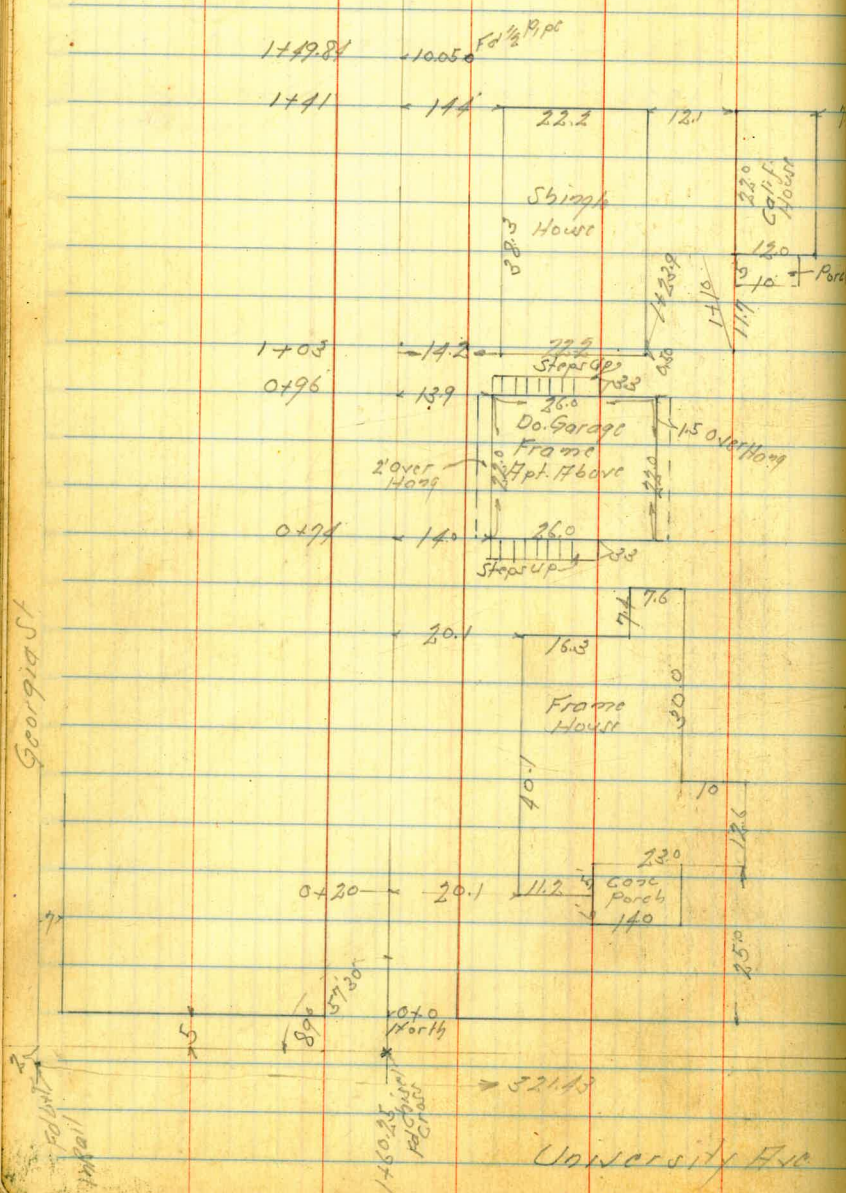 1+49.84 10.05 Fd 1/2 Pipe
1+41 14.1 22.2 12.1
Shingle
House
38.3
22.0
Calif.
House
12.0
10
Porch
11.9
1+10
1+23.9
1+03 14.2 22.2
0.80
Steps up
3.3
0+96 13.9 26.0
Do. Garage
Frame
Apt. Above
22.0
22.0
1.5 Over Hang
2' Over
Hang
0+74 14.0 26.0
Steps up
3.3
7.6
7.4
20.1 16.3
Frame
House
30.0
40.1
10
12.6
23.0
0+20 20.1 11.2
5
Conc
Porch
14.0
25.0
Georgia St
7
5
89° 57' 30"
0+0
North
2
Fd bolt
in Rail
1+60.25
Fd Chisel
Cross
321.43
University Ave